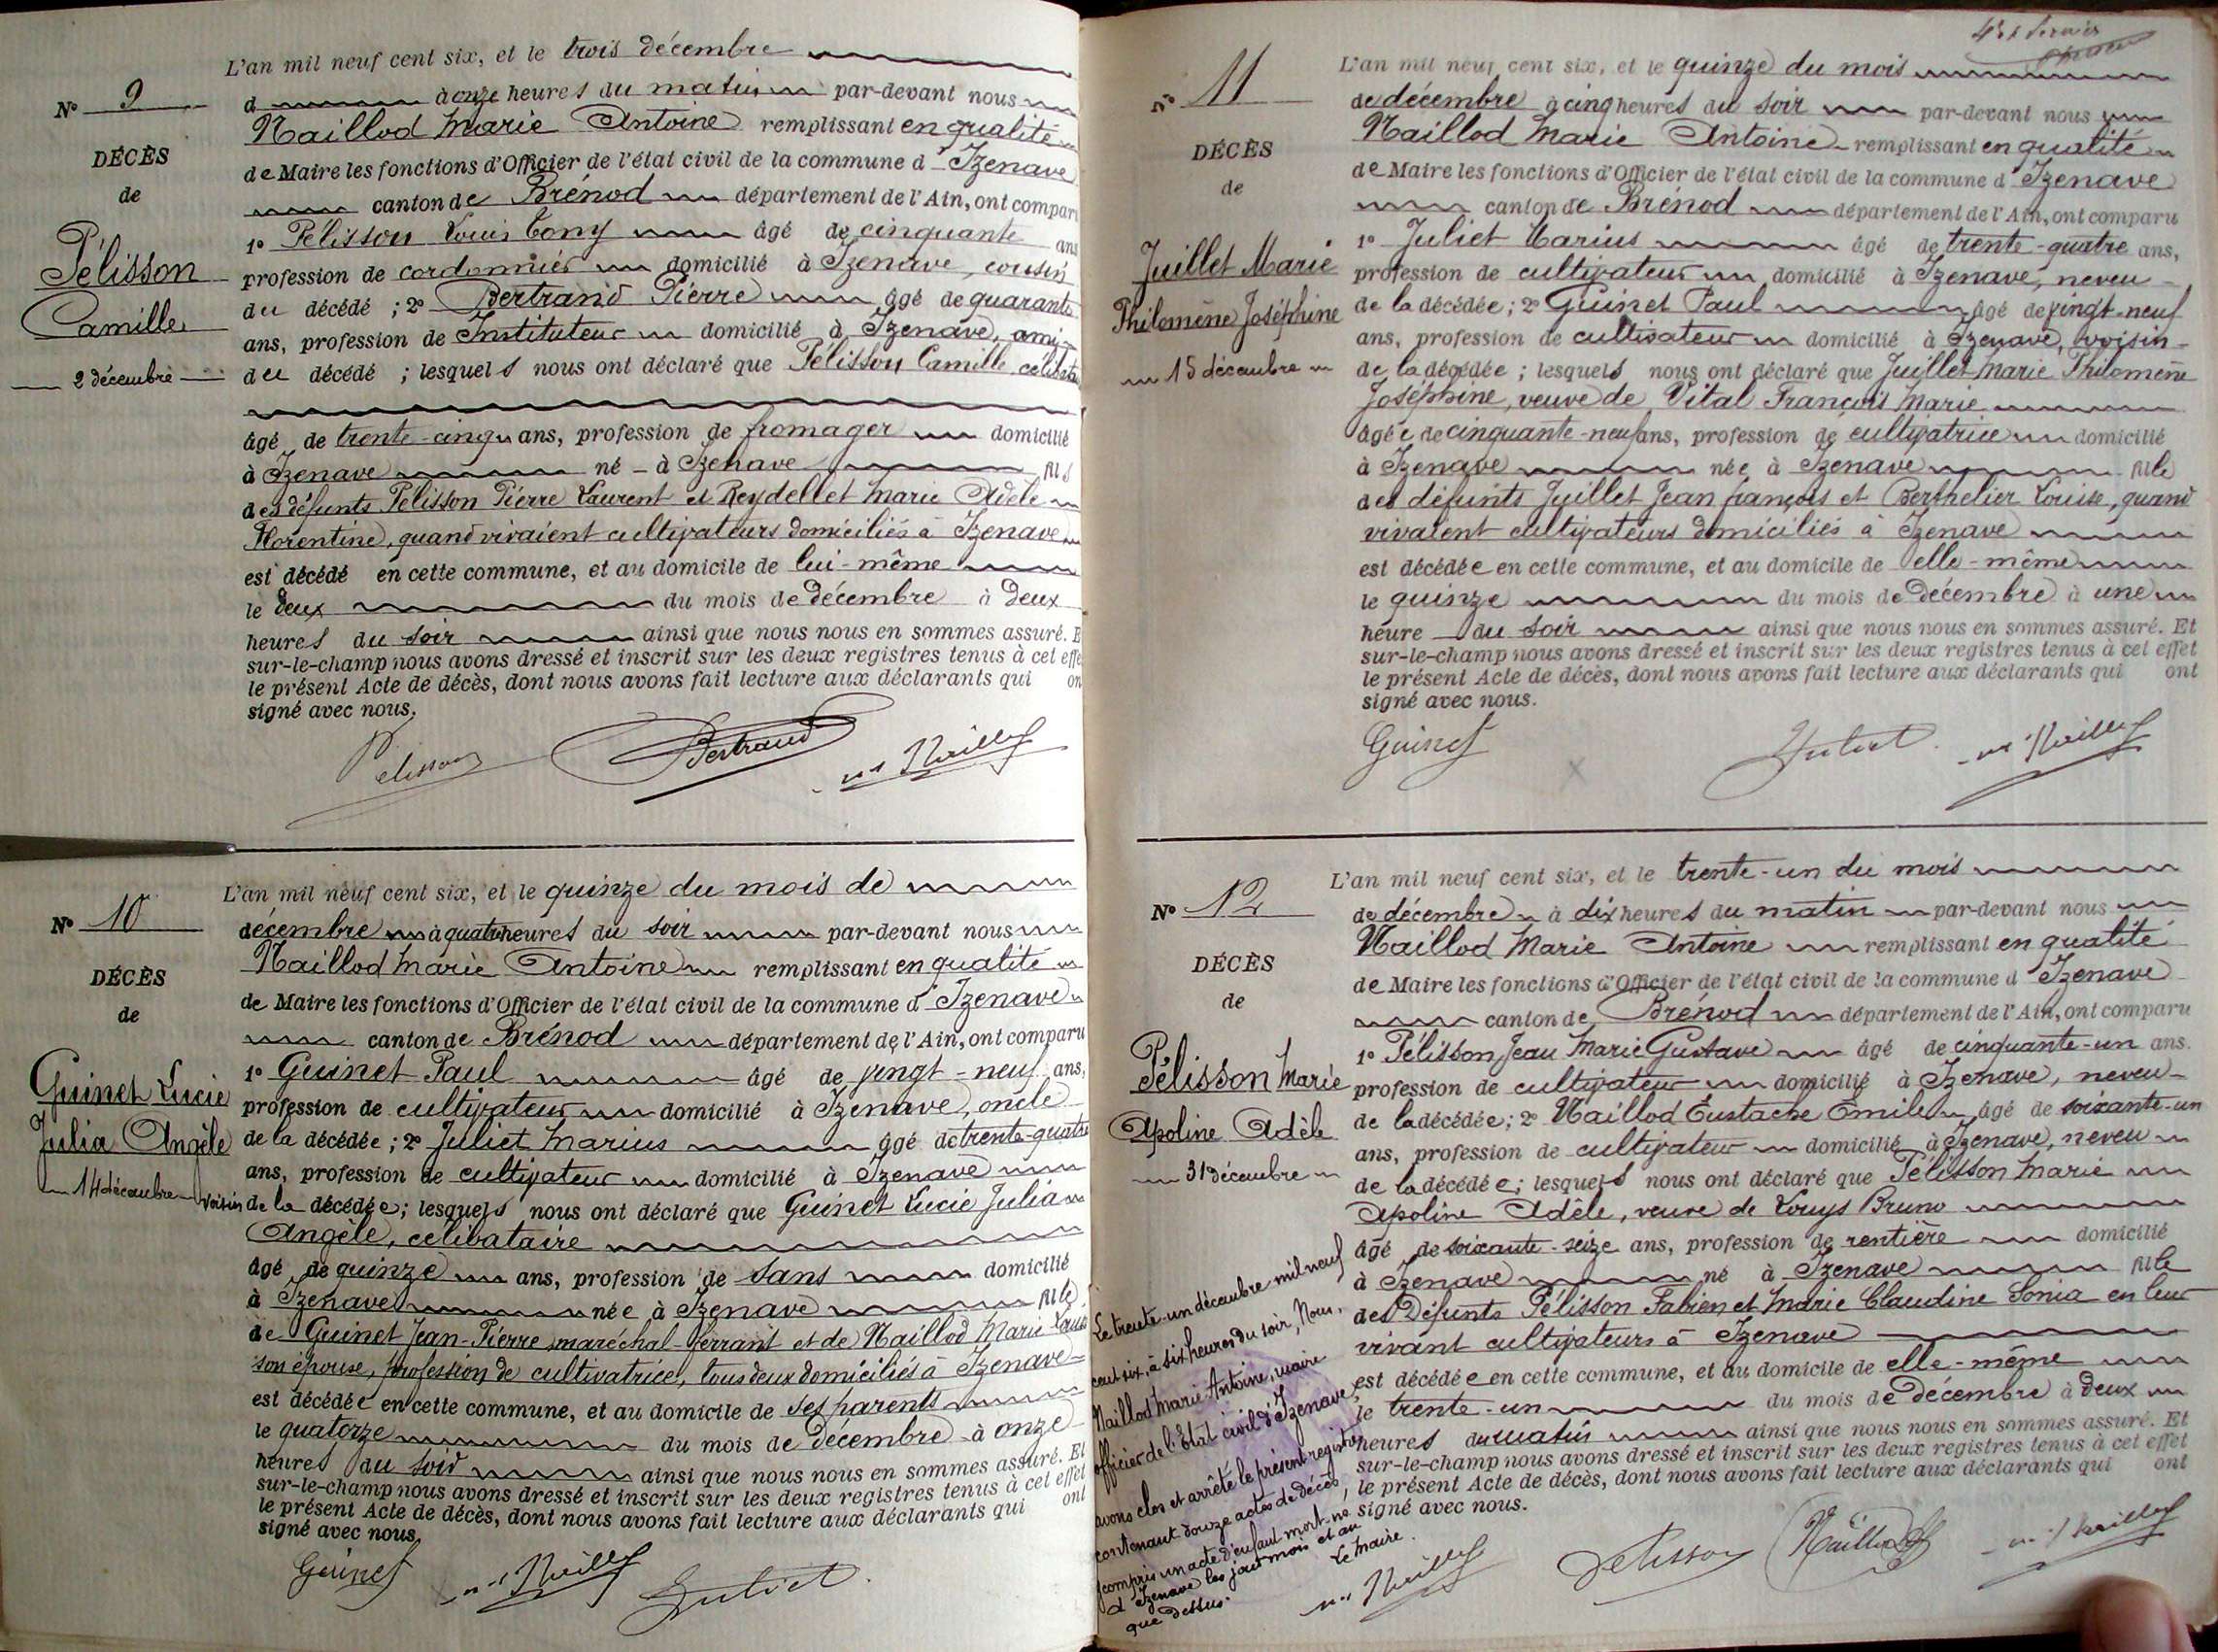 N° 9
DÉCÈS
de
Pélisson
Camille
2 décembre
L'an mil neuf cent six, et le trois décembre
d à onze heures du matin par-devant nous
Maillod Marie Antoine remplissant en qualité
de Maire les fonctions d'Officier de l'état civil de la commune d'Izenave
canton de Brénod département de l'Ain, ont compar
1° Pélisson Louis Tony âgé de cinquante ans
profession de cordonnier domicilié à Izenave, cousin
du décédé ; 2° Bertrand Pierre âgé de quarante
ans, profession de Instituteur domicilié à Izenave, ami
du décédé ; lesquels nous ont déclaré que Pélisson Camille, célibata
âgé de trente-cinq ans, profession de fromager domicilié
à Izenave né à Izenave fils
des défunts Pélisson Pierre Laurent et Reydellet Marie Adèle
Florentine, quand vivaient cultivateurs domiciliés à Izenave
est décédé en cette commune, et au domicile de lui-même
le deux du mois de décembre à deux
heures du soir ainsi que nous nous en sommes assuré. E
sur-le-champ nous avons dressé et inscrit sur les deux registres tenus à cet effe
le présent Acte de décès, dont nous avons fait lecture aux déclarants qui on
signé avec nous.
Pelisson Bertrand M. Maillod
N° 10
DÉCÈS
de
Guinet Lucie
Julia Angèle
14 décembre
L'an mil neuf cent six, et le quinze du mois de
décembre à quatre heures du soir par-devant nous
Maillod Marie Antoine remplissant en qualité
de Maire les fonctions d'Officier de l'état civil de la commune d'Izenave
canton de Brénod département de l'Ain, ont comparu
1° Guinet Paul âgé de vingt-neuf ans,
profession de cultivateur domicilié à Izenave, oncle
de la décédée ; 2° Juliet Marius âgé de trente-quatre
ans, profession de cultivateur domicilié à Izenave
voisin de la décédée ; lesquels nous ont déclaré que Guinet Lucie Julia
Angèle, célibataire
âgé de quinze ans, profession de sans domicilié
à Izenave née à Izenave fille
de Guinet Jean-Pierre maréchal-ferrant et de Maillod Marie Louise
son épouse, profession de cultivatrice, tous deux domiciliés à Izenave
est décédée en cette commune, et au domicile de ses parents
le quatorze du mois de décembre à onze
heures du soir ainsi que nous nous en sommes assuré. Et
sur-le-champ nous avons dressé et inscrit sur les deux registres tenus à cet effet
le présent Acte de décès, dont nous avons fait lecture aux déclarants qui ont
signé avec nous.
Guinet M. Maillod Juliet
N° 11
DÉCÈS
de
Juillet Marie
Philomène Joséphine
15 décembre
L'an mil neuf cent six, et le quinze du mois
de décembre à cinq heures du soir par-devant nous
Maillod Marie Antoine remplissant en qualité
de Maire les fonctions d'Officier de l'état civil de la commune d'Izenave
canton de Brénod département de l'Ain, ont comparu
1° Juliet Marius âgé de trente-quatre ans,
profession de cultivateur domicilié à Izenave, neveu
de la décédée ; 2° Guinet Paul âgé de vingt-neuf
ans, profession de cultivateur domicilié à Izenave, voisin
de la décédée ; lesquels nous ont déclaré que Juillet Marie Philomène
Joséphine, veuve de Vital François Marie
âgée de cinquante-neuf ans, profession de cultivatrice domicilié
à Izenave née à Izenave fille
des défunts Juillet Jean françois et Berthelier Louise, quand
vivaient cultivateurs domiciliés à Izenave
est décédée en cette commune, et au domicile de elle-même
le quinze du mois de décembre à une
heure du soir ainsi que nous nous en sommes assuré. Et
sur-le-champ nous avons dressé et inscrit sur les deux registres tenus à cet effet
le présent Acte de décès, dont nous avons fait lecture aux déclarants qui ont
signé avec nous.
Guinet Juliet M. Maillod
N° 12
DÉCÈS
de
Pélisson Marie
Apoline Adèle
31 décembre
L'an mil neuf cent six, et le trente-un du mois
de décembre à dix heures du matin par-devant nous
Maillod Marie Antoine remplissant en qualité
de Maire les fonctions d'Officier de l'état civil de la commune d'Izenave
canton de Brénod département de l'Ain, ont comparu
1° Pélisson Jean Marie Gustave âgé de cinquante-un ans.
profession de cultivateur domicilié à Izenave, neveu
de la décédée ; 2° Maillod Eustache Emile âgé de soixante-un
ans, profession de cultivateur domicilié à Izenave, neveu
de la décédée ; lesquels nous ont déclaré que Pélisson Marie
Apoline Adèle, veuve de Louys Bruno
âgé de soixante-seize ans, profession de rentière domicilié
à Izenave né à Izenave fille
des Défunts Pélisson Fabien et Marie Claudine Sonia en leur
vivant cultivateurs à Izenave
est décédée en cette commune, et au domicile de elle-même
le trente-un du mois de décembre à deux
heures du matin ainsi que nous nous en sommes assuré. Et
sur-le-champ nous avons dressé et inscrit sur les deux registres tenus à cet effet
le présent Acte de décès, dont nous avons fait lecture aux déclarants qui ont
signé avec nous.
Pelisson Maillod M. Maillod
Le trente-un décembre mil neuf
cent six, à six heures du soir, Nous,
Maillod Marie-Antoine, maire
officier de l'Etat civil d'Izenave,
avons clos et arrêté le présent registre
contenant douze actes de décès,
compris un acte d'enfant mort-né
d'Izenave les jour mois et an
que dessus. Le Maire.
M. Maillod